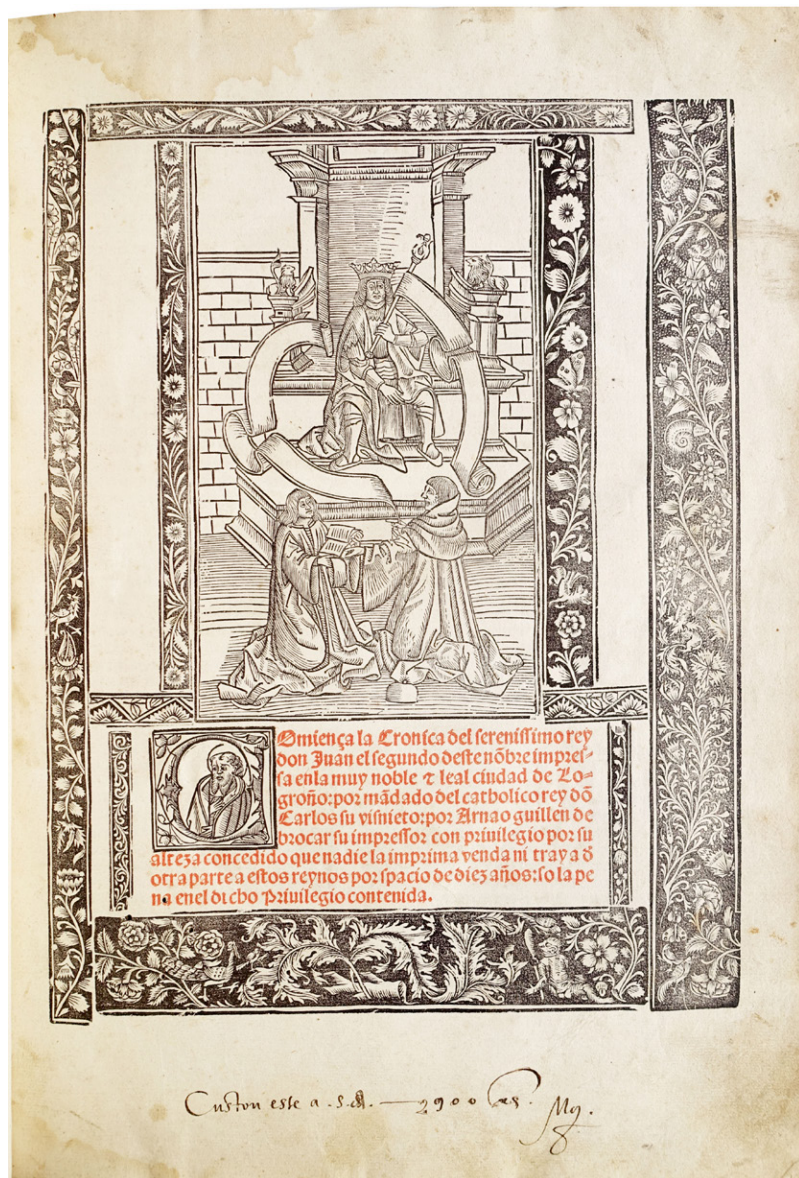 Comiença la Cronica del serenissimo rey
don Juan el segundo deste nõbre impres-
sa enla muy noble ⁊ leal ciudad de Lo-
groño: por mãdado del catholico rey dõ
Carlos su visnieto: por Arnao guillen de
brocar su impressor con priuilegio por su
alteza concedido que nadie la imprima venda ni traya đ
otra parte a estos reynos por spacio de diez años: so la pe
na enel dicho Priuilegio contenida.
este a